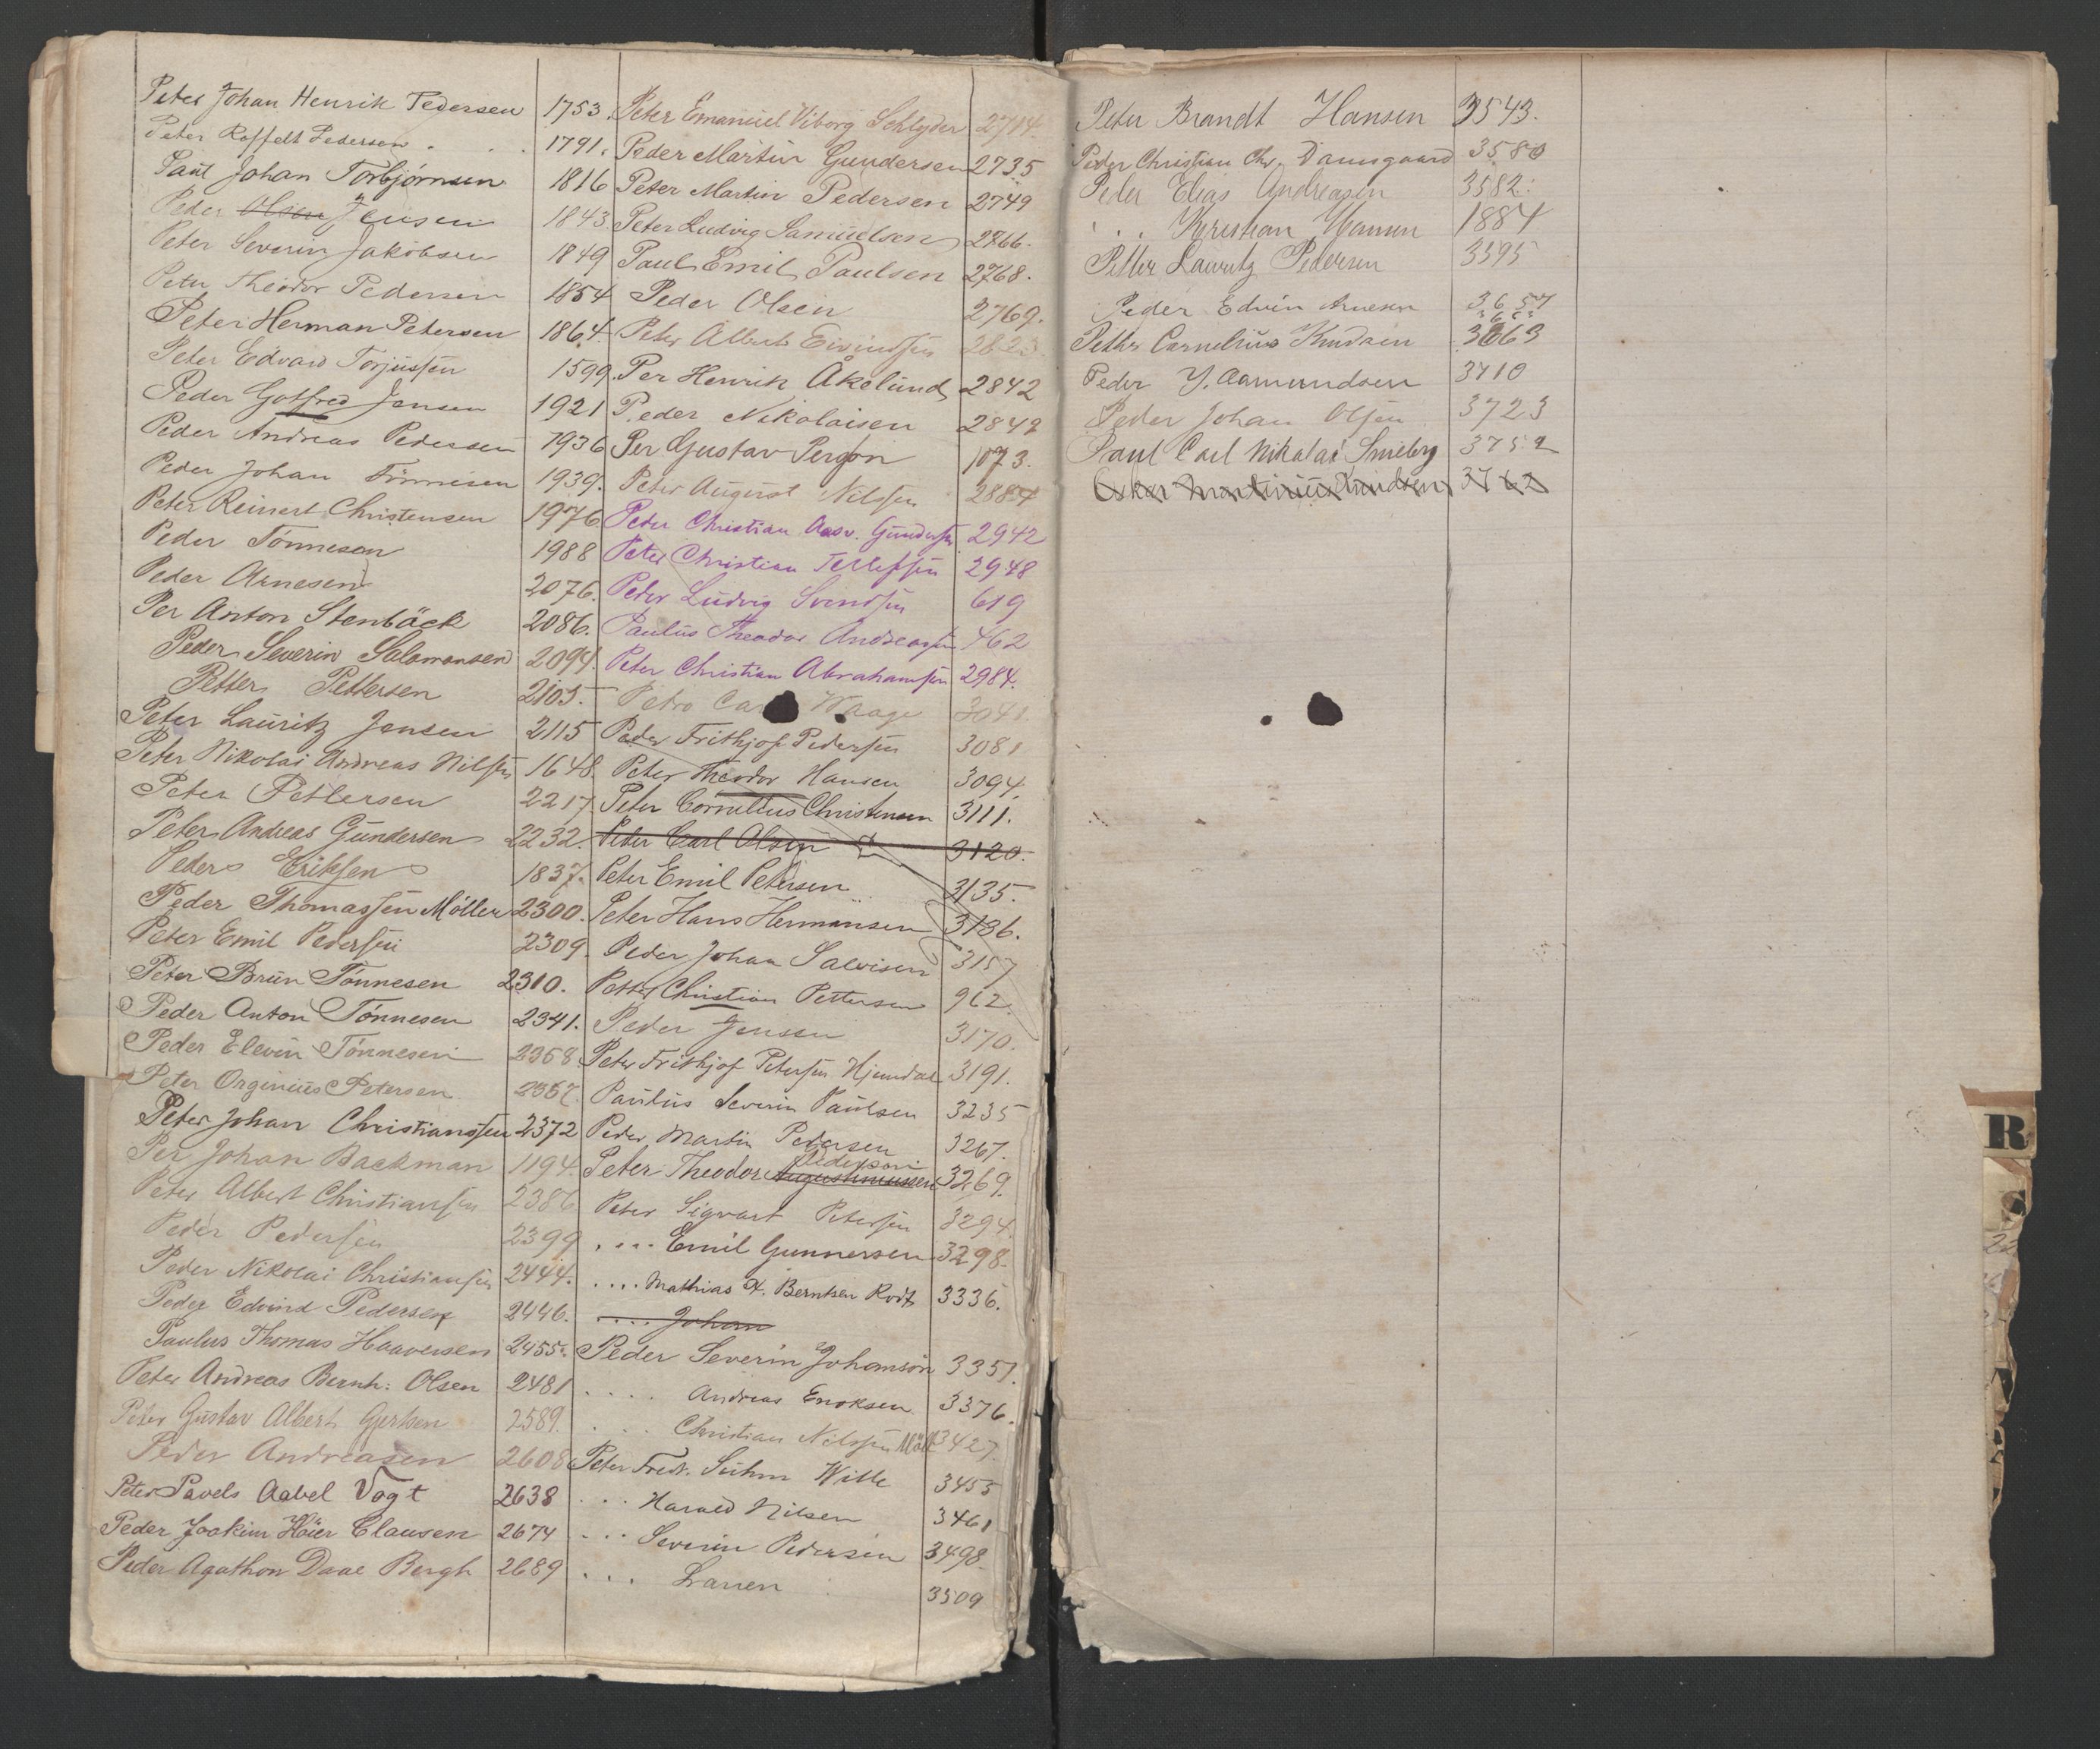 Peter Johan Henrik Pedersen 1753.
Peter Roffelt Pedersen . . . 1791.
Paul Johan Torbjørnsen 1816
Peder Olsen Jensen 1843.
Peter Severin Jakobsen 1849
Peter Theodor Pedersen 1854
Peter Herman Petersen 1864.
Peter Edvard Torjussen 1599.
Peder Gotfred Jensen 1921
Peder Andreas Pedersen 1936
Peder Johan Tønnesen 1939.
Peter Reinert Christensen 1976
Peder Tønnesen 1988
Peder Arnesen 2076.
Per Anton Stenbäck 2086.
Peder Severin Salomonsen 2094.
Petter Pettersen 2105.
Peter Lauritz Jensen 2115
Peter Nikolai Andreas Nilsen 1648.
Peter Pettersen 2217
Peter Andreas Gundersen 2232.
Peder Eriksen 1837.
Peder Thomassen Möller 2300.
Peter Emil Pedersen 2309
Peter Brun Tønnesen 2310.
Peder Anton Tønnesen 2341.
Peder Elevin Tønnesen 2358
Peter Orginius Petersen
Peter Johan Christianssen 2372
Per Johan Backman 1194.
Peter Albert Christiansen 2386
Peder Pedersen 2399
Peder Nikolai Christiansen 2444.
Peder Edvind Pedersen 2446.
Paulus Thomas Haaversen 2455.
Peter Andreas Bernh: Olsen 2481
Peter Gustav Albert Gjertsen 2589.
Peder Andreasen 2608
Peter Pavels Aabel Vogt 2638
Peder Joakim Høier Clausen 2674
Peder Agathon Daae Bergh 2689
Peter Emanuel Viborg Schlyder 2714.
Peder Martin Gundersen 2735
Peter Martin Pedersen 2749
Peter Ludvig Samuelsen 2766.
Paul Emil Paulsen 2768.
Peder Olsen 2769.
Peter Albert Eivindsen 2823.
Per Henrik Åkelund 2842
Peder Nikolaisen 2849
Per Gustav Person 1073.
Peter August Nilsen 2884
Peder Christian Aasv. Gundersen 2942
Peter Christian Tellefsen 2948
Peder Ludvig Svendsen 619
Paulus Theodor Andreasen 462
Peter Christian Abrahamsen 2984.
Petro Carl Waage 3041
Peder Frithjof Pedersen 3081
Peter Theodor Hansen 3094.
Peter Cornelius Christensen 3111.
Peder Carl Olsen 3120.
Peter Emil Petersen 3135.
Peter Hans Hermansen 3136.
Peder Johan Salvisen 3157
Petter Christian Pettersen 962.
Peder Jensen 3170.
Peter Frithjof Petersen Hjemdal 3191.
Paulus Severin Paulsen 3235
Peder Martin Pedersen 3267.
Pedersen
Peter Theodor Augustinussen 3269.
Peter Sigvart Petersen 3294.
. . . . Emil Gunnersen 3298.
. . . . Mathias A. Berntsen Rodt 3336.
. . . . Johan
Peder Severin Johanson 3357.
. . . . Andreas Enoksen 3376.
. . . Christian Nilssen Möll 3427
Peter Fredr. Suhm Wille 3455
. . . Harald Nilsen 3461
. . . Severin Pedersen 3498.
. . . Larsen 3509
Peter Brandt Hansen 3543.
Peder Christian Chr. Damsgaard 3580
Peder Elias Andreasen 3582.
. . . Kristian Hansen 1884
Petter Lauritz Pedersen 3595
Peder Edvin Arnesen 3657
Petter Cornelius Knudsen 3663
Peder Y. Aamundsen 3710
Peder Johan Olsen 3723
Paul Carl Nikolai Smieberg 3752
Oskar Martinius Knudsen 3762
R
S